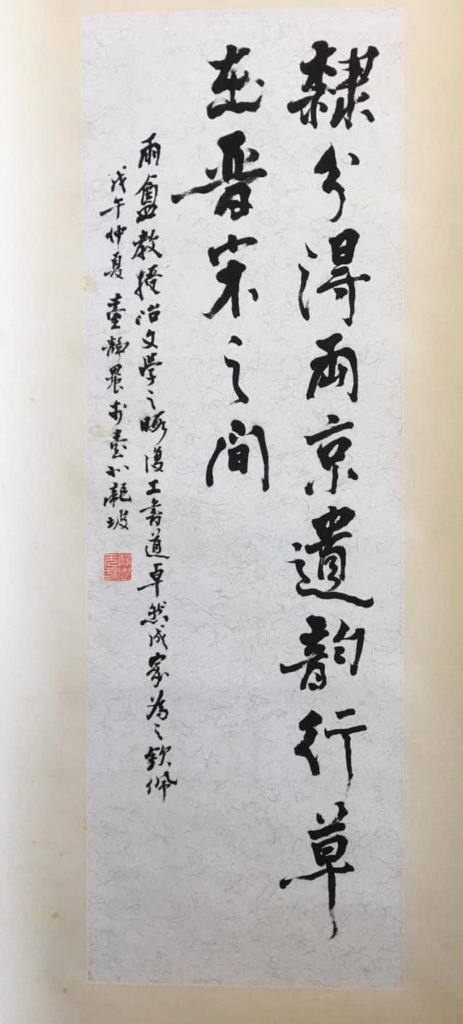 隸分得兩京遺韵行草
在晉宋之間
雨盦教授治文學之暇復工書道卓然成家為之欽佩
戊午仲夏臺靜農於臺北龍坡